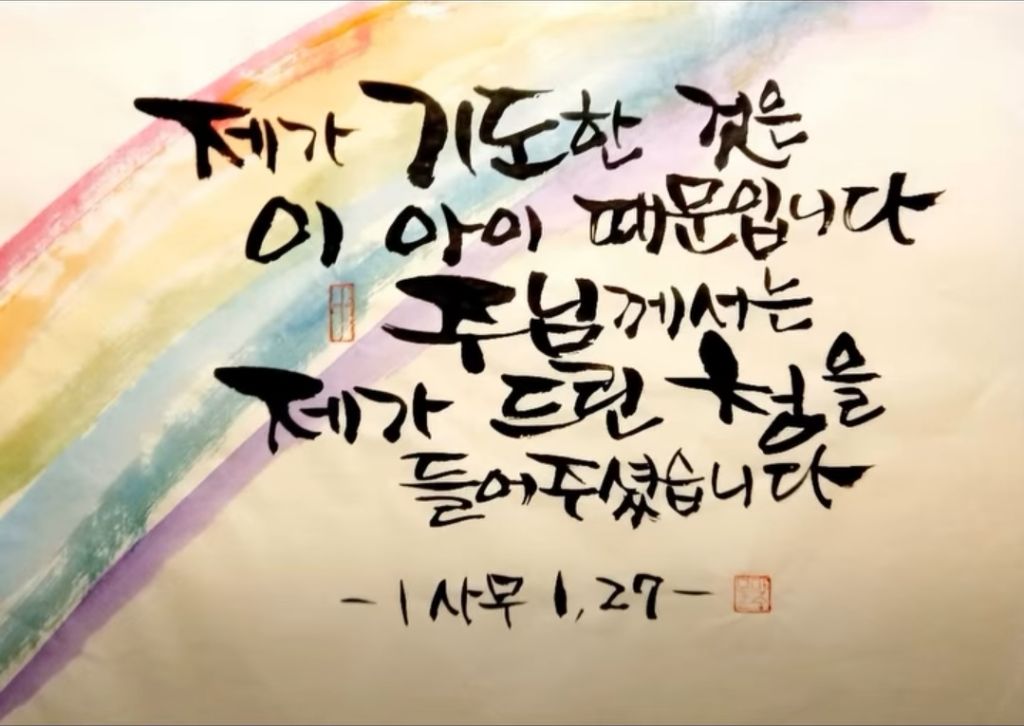 제가 기도한 것은
이 아이 때문입니다
주님께서는
제가 드린 청을
들어주셨습니다
- 1 사무 1, 27 -